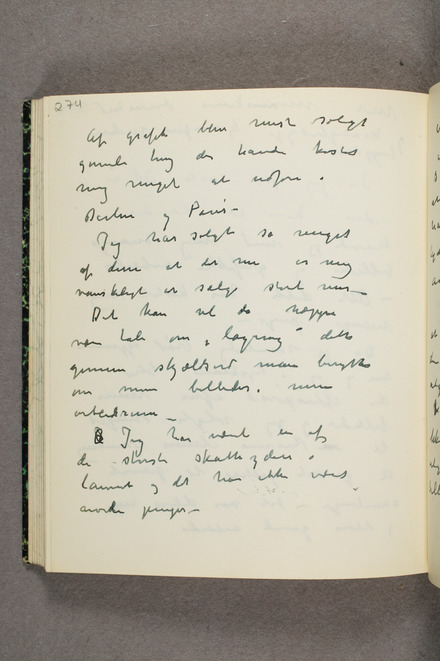 274
Af grafik blev mest solgt
gamle ting der havde kostet
mig meget at udføre.
Berlin og Paris –
Jeg har solgt så meget
af dem at det nu er mig
vanskeligt at sælge stort mer –
Det kan vel da næppe
være tale om „lagring" dette
gemene skjældsord man brugte
om mine billeder. mine
arbeidsrum –
Jeg har vært en af
de største skatteydere i
landet og det har ikke vært
andre penger –